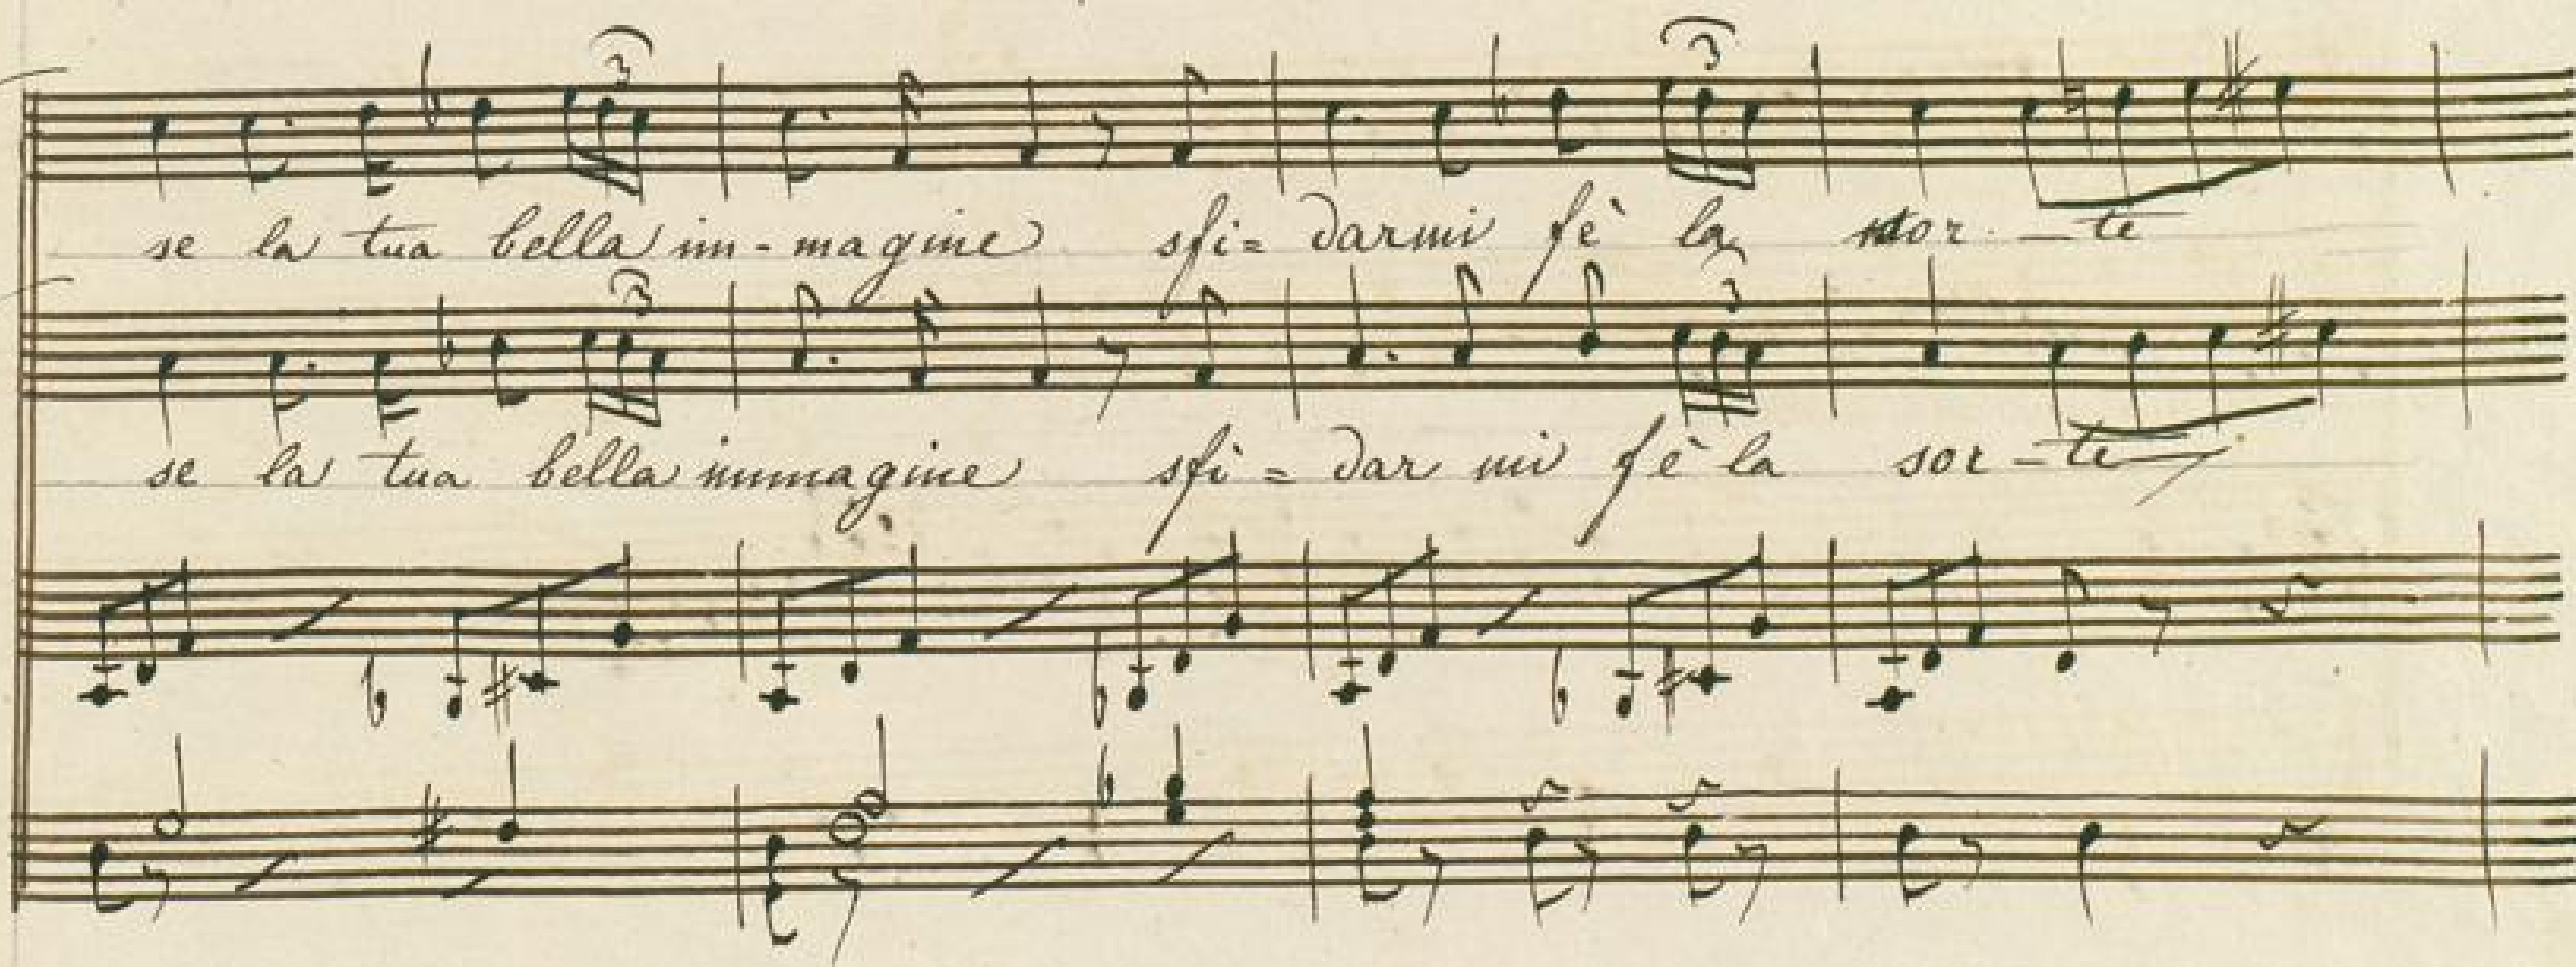 3 3
se la tua bella im-magine sfi= darmi fè la sor-te
3 3
se la tua bella immagine sfi= dar mi fè la sor-te